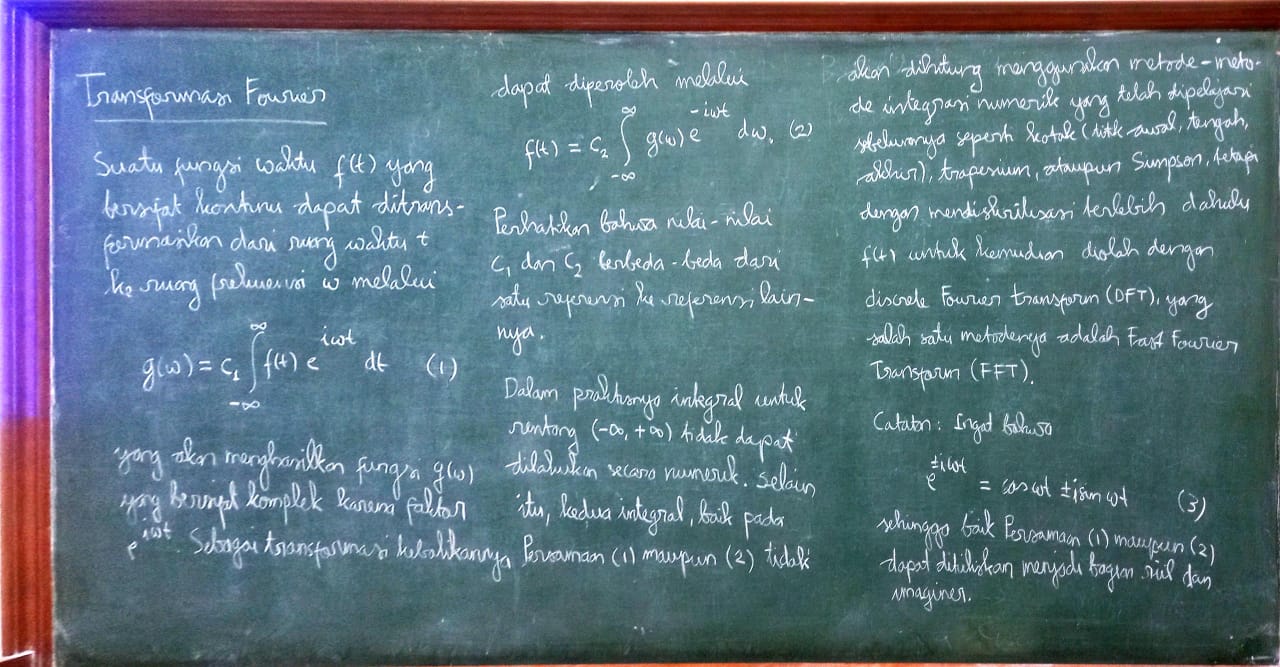 Transformasi Fourier
Suatu fungsi waktu f(t) yang
bersifat kontinu dapat ditrans-
formasikan dari ruang waktu t
ke ruang frekuensi ω melalui
g(ω) = C₁ ∫_{-∞}^{∞} f(t) e^{iωt} dt (1)
yang akan menghasilkan fungsi g(ω)
yang bersifat komplek karena faktor
e^{iωt}. Sebagai transformasi kebalikannya
dapat diperoleh melalui
f(t) = C₂ ∫_{-∞}^{∞} g(ω) e^{-iωt} dω. (2)
Perhatikan bahwa nilai-nilai
C₁ dan C₂ berbeda-beda dari
satu referensi ke referensi lain-
nya.
Dalam praktiknya integral untuk
rentang (-∞, +∞) tidak dapat
dilakukan secara numerik. Selain
itu, kedua integral, baik pada
Persamaan (1) maupun (2) tidak
akan dihitung menggunakan metode-meto-
de integrasi numerik yang telah dipelajari
sebelumnya seperti kotak (titik awal, tengah,
akhir), trapesium, ataupun Simpson, tetapi
dengan mendiskritisasi terlebih dahulu
f(t) untuk kemudian diolah dengan
discrete Fourier transform (DFT), yang
salah satu metodenya adalah Fast Fourier
Transform (FFT).
Catatan: Ingat bahwa
e^{±iωt} = cos ωt ± i sin ωt (3)
sehingga baik Persamaan (1) maupun (2)
dapat dituliskan menjadi bagian riil dan
imaginer.